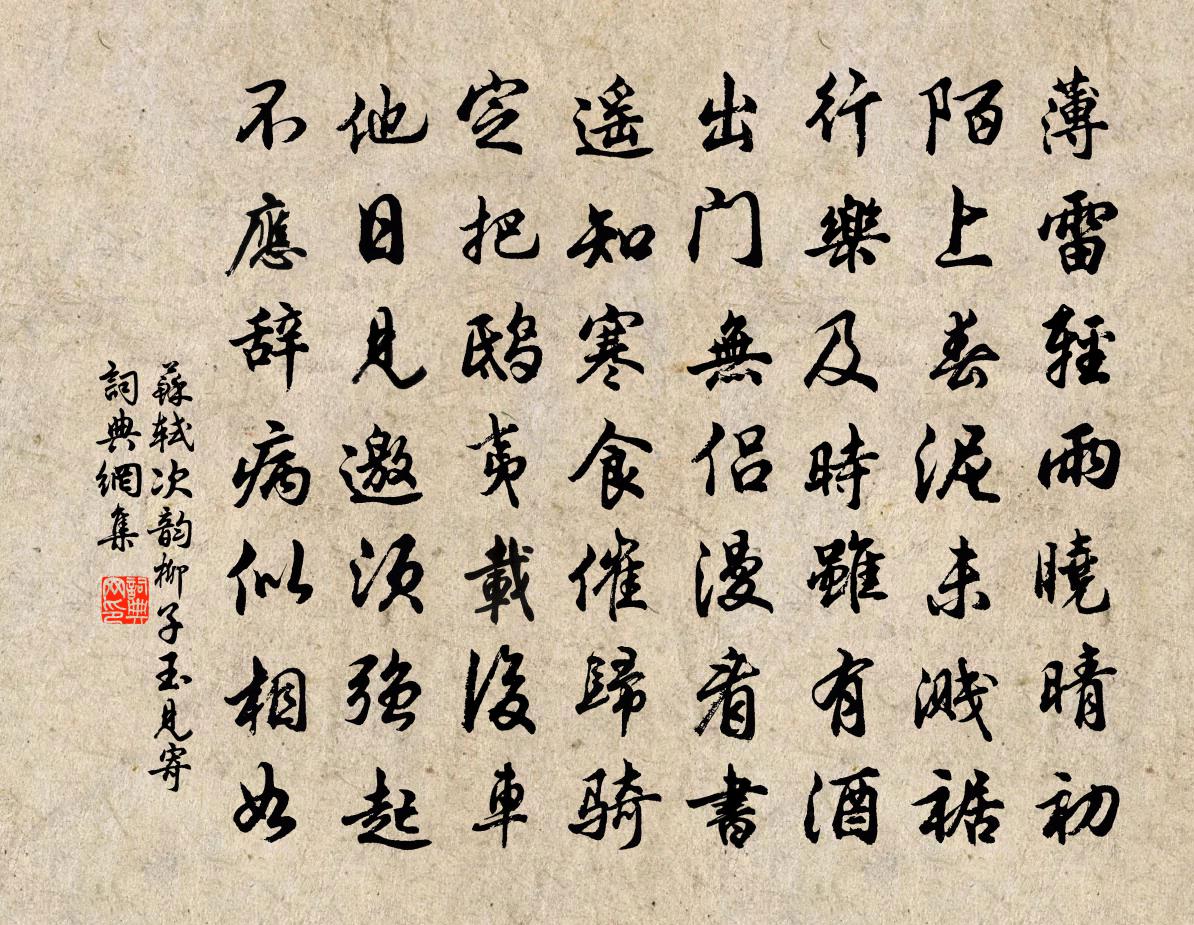 薄雷輕雨曉晴初
陌上春泥未濺裾
行樂及時雖有酒
出門無侶漫看書
遥知寒食催歸騎
定把鴟夷載後車
他日見邀須强起
不應辞病似相如
蘇軾次韵柳子玉見寄
詞典網集